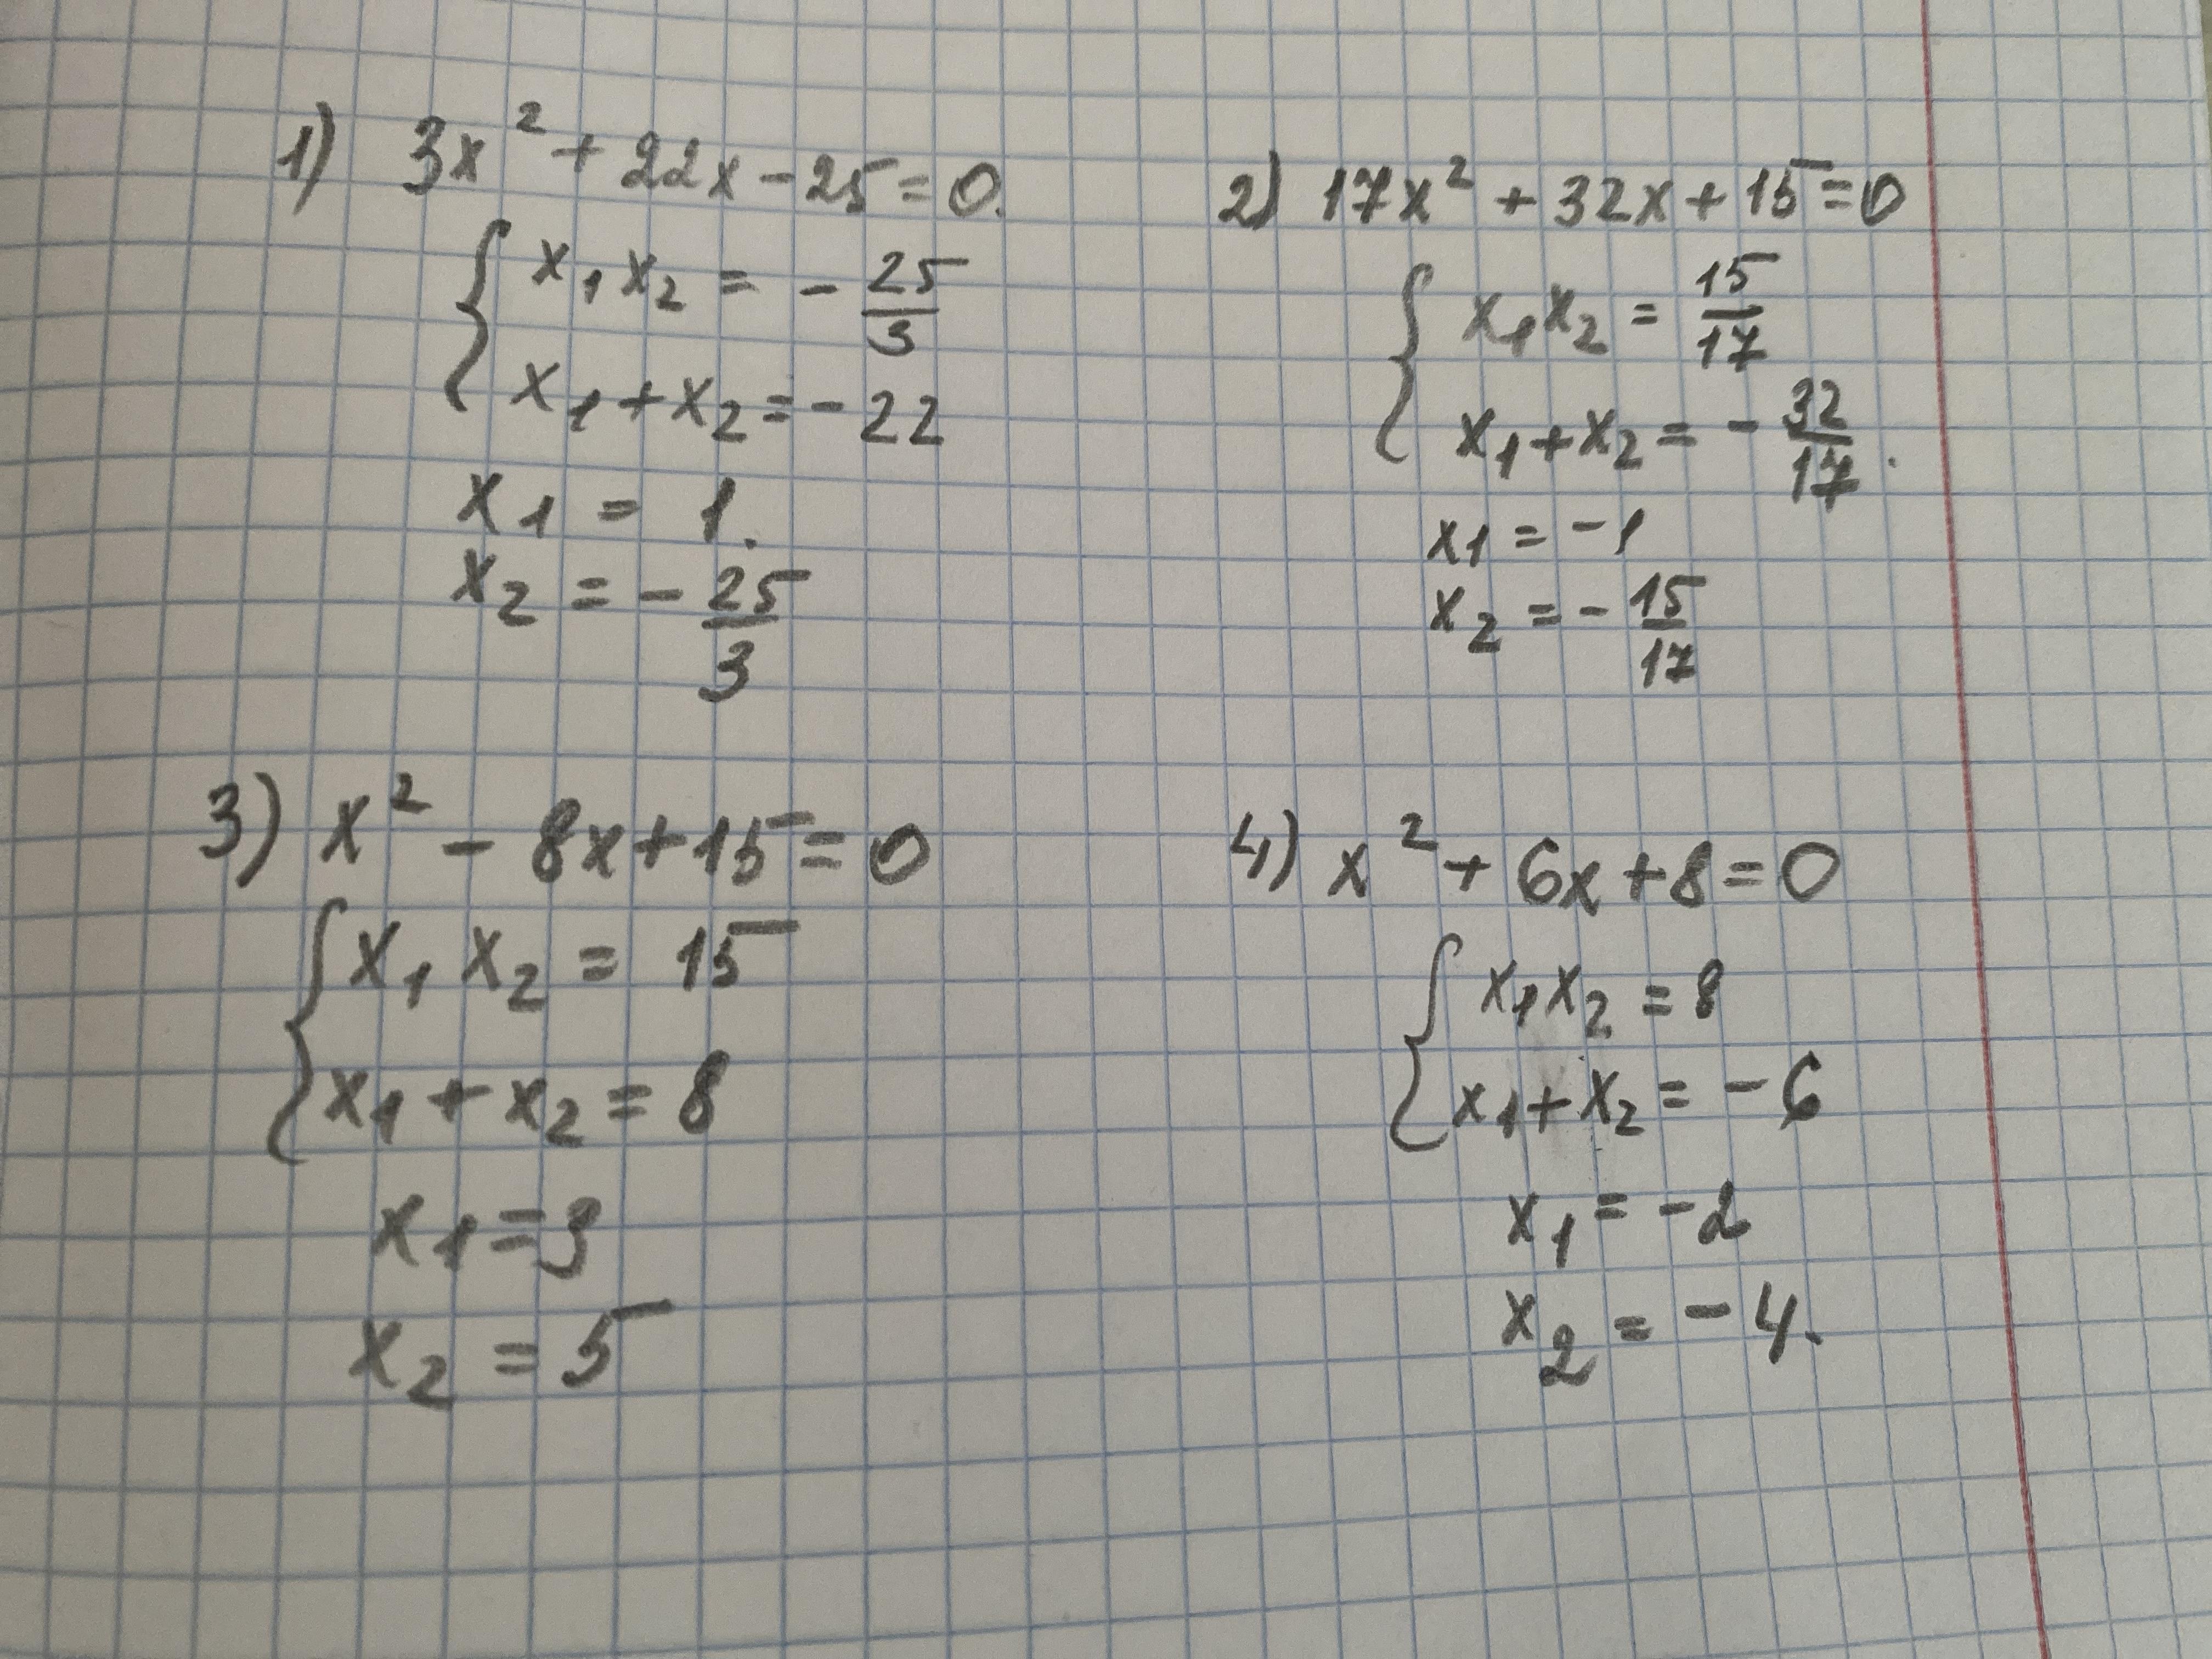 1) 3x² + 22x - 25 = 0.
{ x₁x₂ = - 25/3
x₁ + x₂ = - 22
x₁ = 1.
x₂ = - 25/3
2) 17x² + 32x + 15 = 0
{ x₁x₂ = 15/17
x₁ + x₂ = - 32/17.
x₁ = -1
x₂ = - 15/17
3) x² - 8x + 15 = 0
{ x₁x₂ = 15
x₁ + x₂ = 8
x₁ = 3
x₂ = 5
4) x² + 6x + 8 = 0
{ x₁x₂ = 8
x₁ + x₂ = - 6
x₁ = -2
x₂ = - 4.